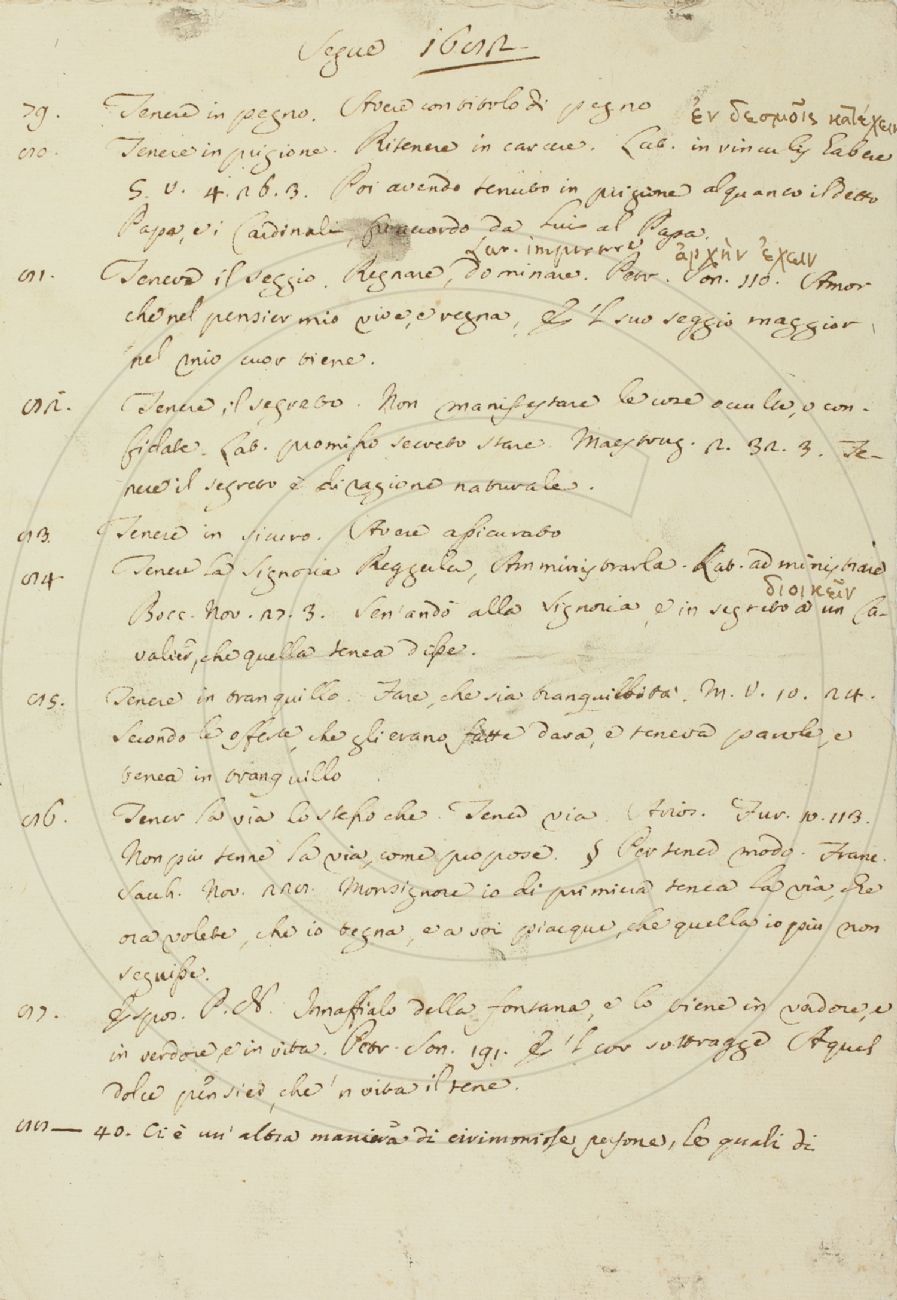 Segue 1682
79. Tenere in pegno. Avere con titolo di pegno
ἐν δεσμοῖς κατέχειν
80. Tenere in prigione. Ritenere in carcere. Lat. in vinculis habere
G. V. 4. 26. 3. Poi avendo tenuto in prigione alquanto il detto
Papa, e i Cardinali, fu accordo da lui al Papa.
Lat. imperare ἀρχὴν ἔχειν
81. Tenere il seggio. Regnare, dominare. Petr. Son. 110. Amor
che nel pensier mio vive, e regna, E 'l suo seggio maggior
nel mio cuor tiene.
82. Tenere il segreto. Non manifestare le cose occulte, o con-
fidate. Lat. promisso secreto stare. Maestruz. 2. 32. 3. Te-
nere il segreto è di ragione naturale.
83. Tenere in sicuro. Avere assicurato
84 Tenere la Signoria Reggerla, Amministrarla. Lat. administrare
διοικεῖν
Bocc. Nov. 27. 3. Sen'andò alla Signoria, e in segreto a un Ca-
valier, che quella tenea disse.
85. Tenere in tranquillo. Fare, che sia tranquillità. M. V. 10. 24.
Secondo le offerte, che gli erano fatte dava, e teneva parole, e
tenea in tranquillo
86. Tener la via lo stesso che Tener via. Arios. Fur. 10. 113.
Non più tenne la via, come propose. § Per tener modo. Franc.
Sacch. Nov. 228. Monsignore io di primiera tenea la via, che
ora volete, che io tegna, e a voi piacque, che quella io più non
seguisse.
87. Espos. P. N. Innaffialo della fontana, e lo tiene in verdore, e
in verdore e in vita. Petr. Son. 191. E 'l cor sottragge A quel
dolce pensier, che 'n vita il tene.
88 — 40. Ci è un' altra maniera di cirimoniose persone, le quali di